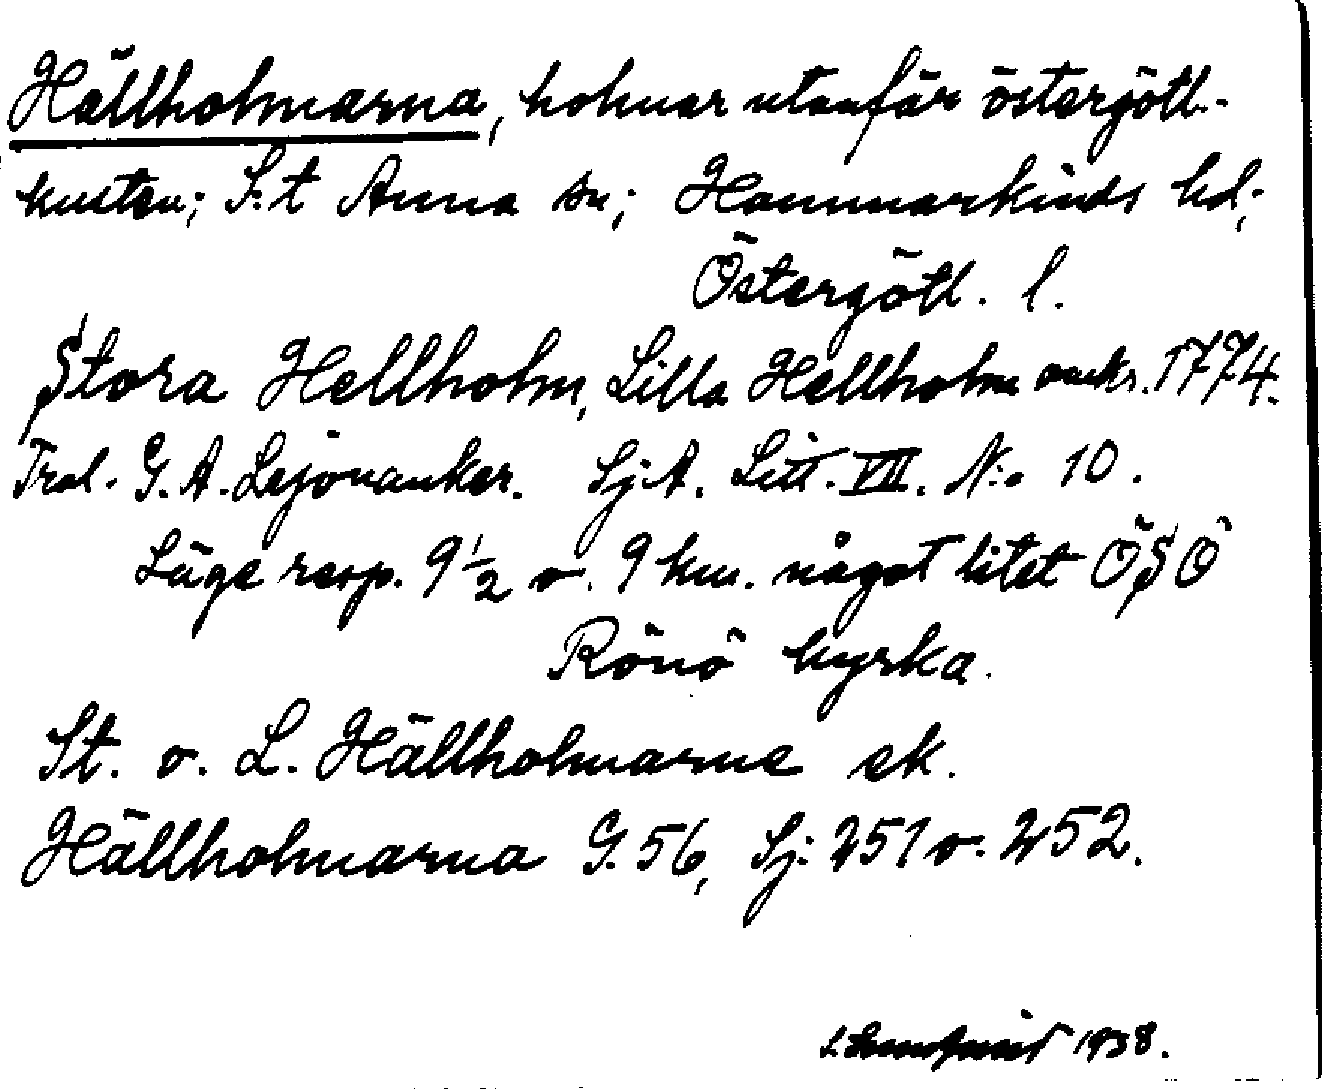 Hällholmarna, holmar utanför östergötl.-
kusten; S:t Anna sn; Hammarkinds hd;
Östergötl. l.
Stora Hellholm, Lilla Hellholm omkr. 1774.
Trol. G. A. Lejonanker. Sj.A. Litt. VII. N:o 10.
Läge resp. 9 1/2 o. 9 km. något litet Ö S Ö
Rönö kyrka.
St. o. L. Hällholmarne ek.
Hällholmarna G. 56, Sj: 251 o. 252.
1938.